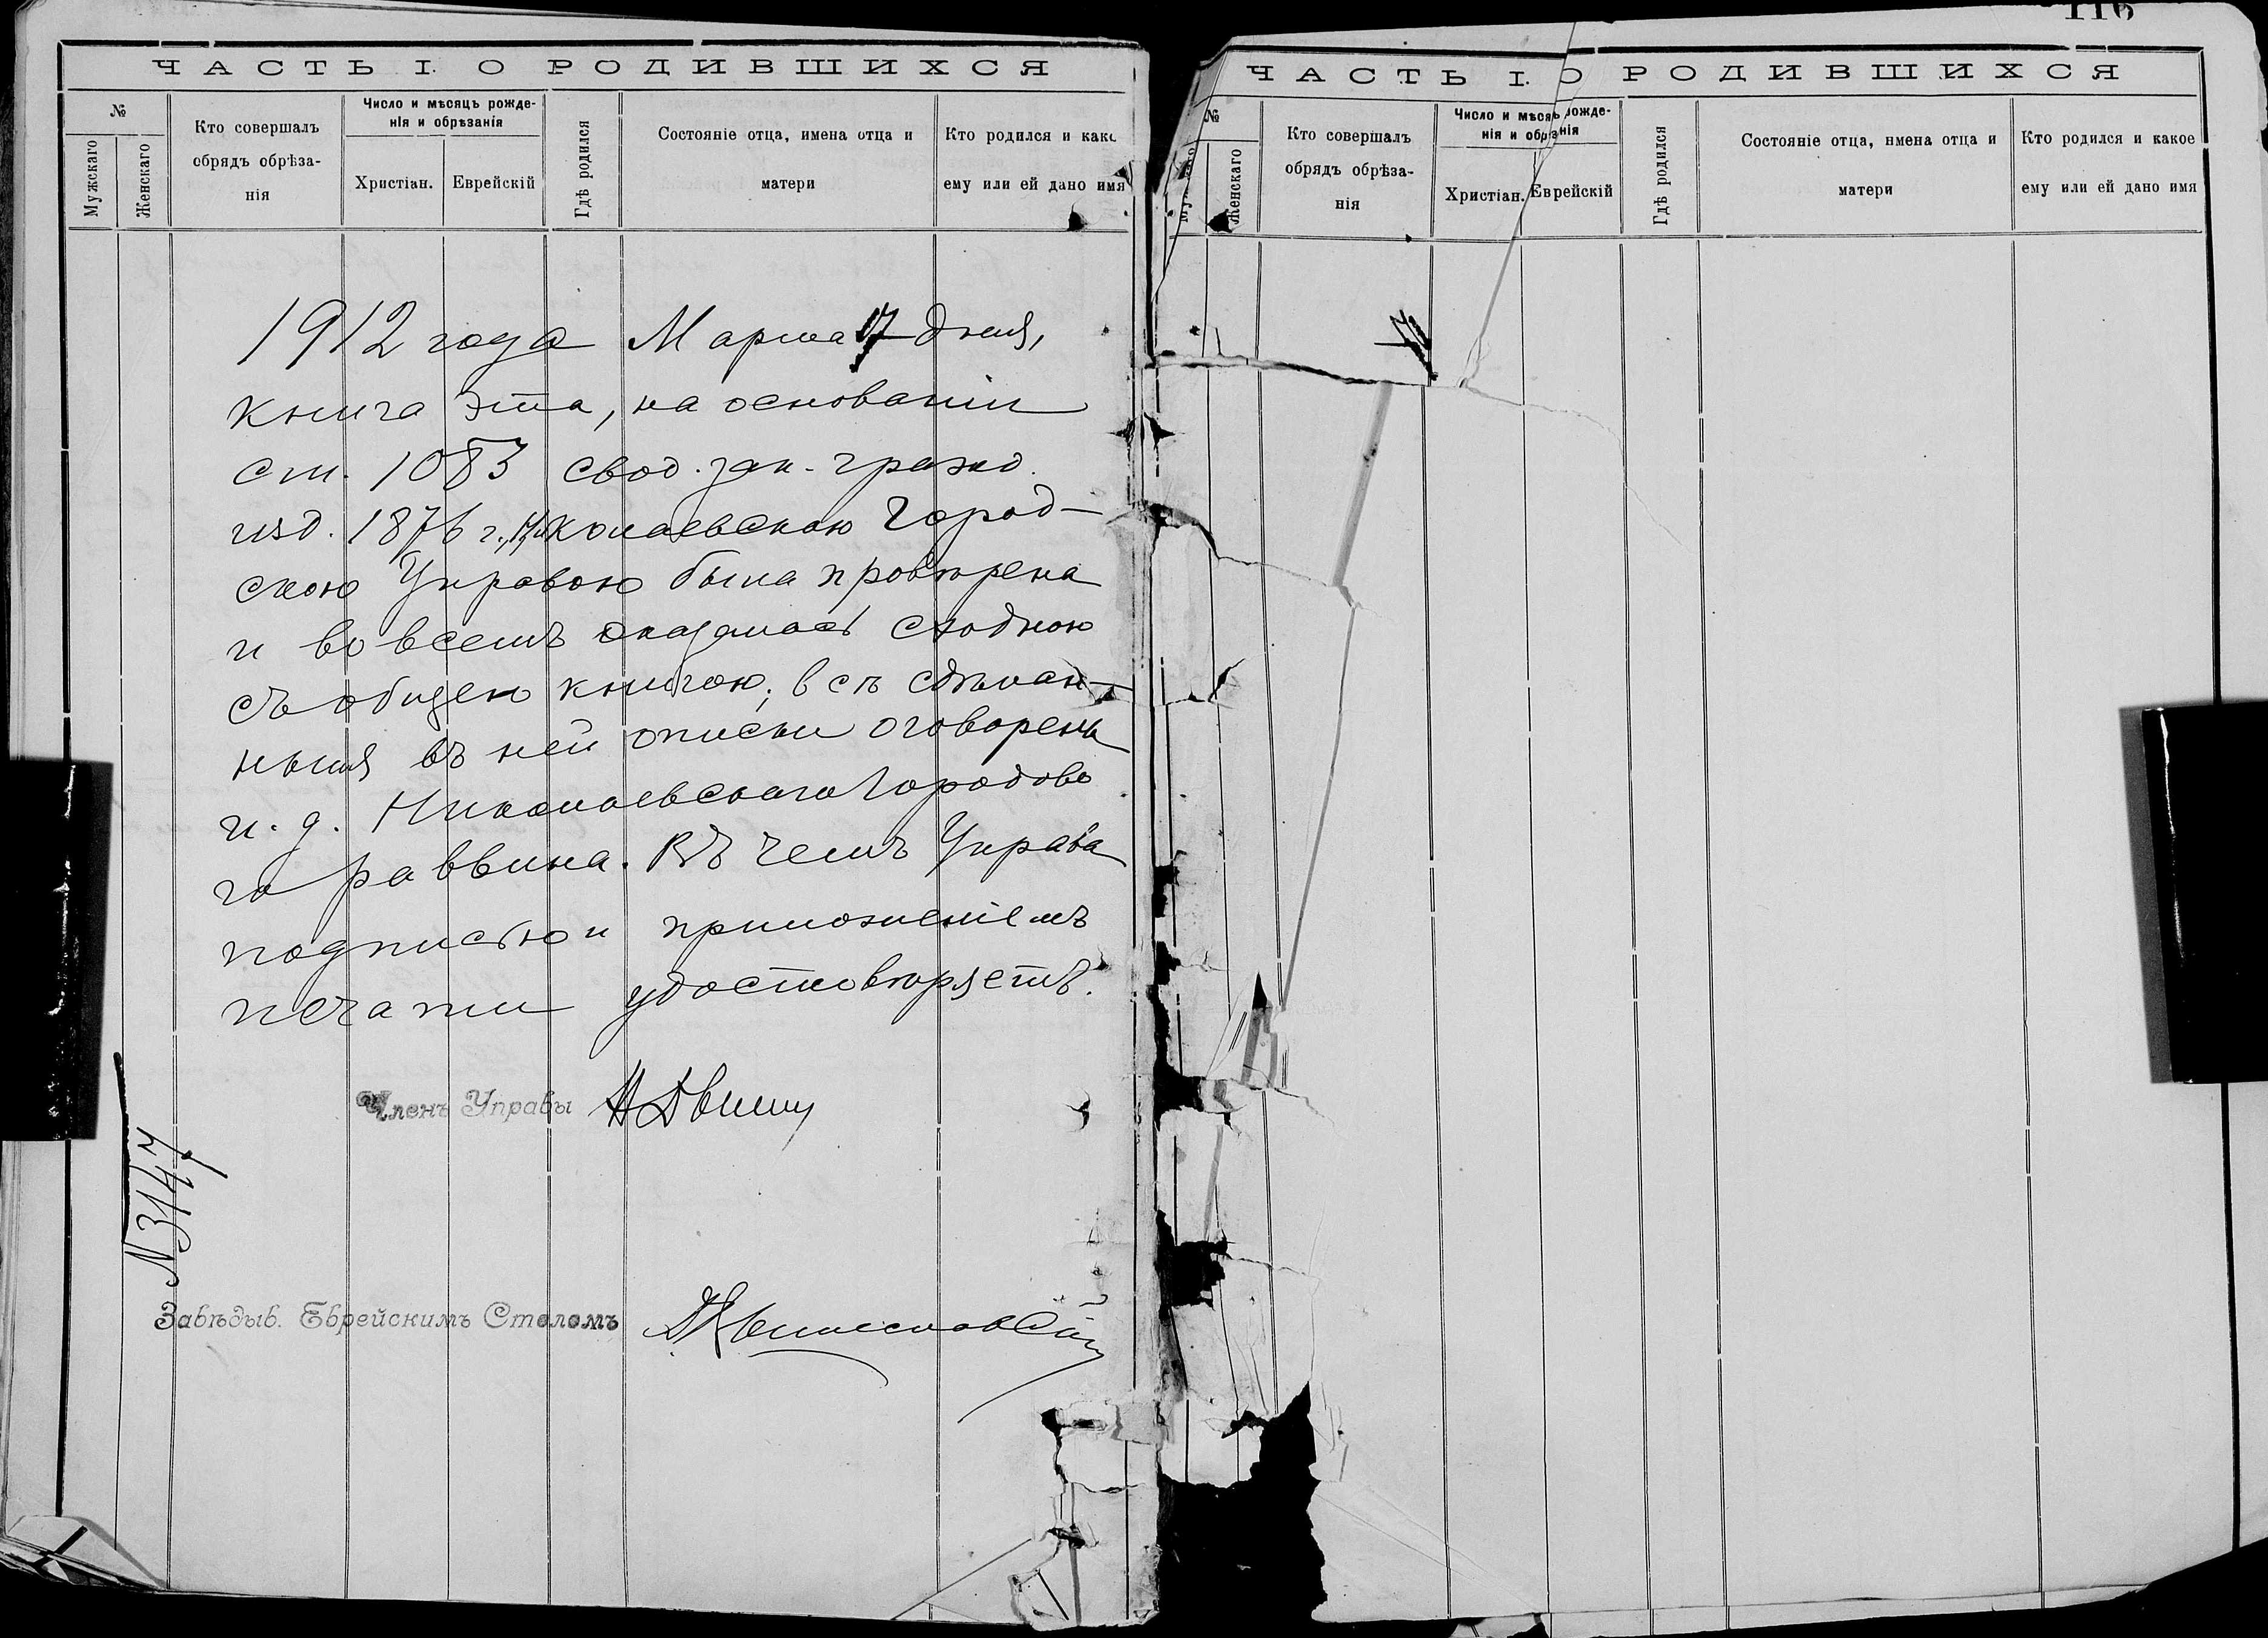 116
ЧАСТЬ I. О РОДИВШИХСЯ
№
Мужскаго
Женскаго
Кто совершалъ
обрядъ обрѣза-
нія
Число и мѣсяцъ рожде-
нія и обрѣзанія
Христіан.
Еврейскій
Гдѣ родился
Состояніе отца, имена отца и
матери
Кто родился и како
ему или ей дано имя
1912 года Марта 17 дня,
книга эта, на основаніи
ст. 1083 свод. зак. гражд.
изд. 1876 г., Николаевскою Город-
скою Управою была провѣрена
и во всемъ оказалась сходною
съ общею книгою; всѣ сдѣлан-
ныя въ ней описки оговорены
и. д. Николаевскаго Городово
го раввина. Въ чемъ Управа
подписью и приложеніемъ
печати удостовѣряетъ.
Членъ Управы
№3147
Завѣдыв. Еврейскимъ Столомъ
ЧАСТЬ I. О РОДИВШИХСЯ
№
Женскаго
Кто совершалъ
обрядъ обрѣза-
нія
Число и мѣсяцъ рожде-
нія и обрѣзанія
Христіан.
Еврейскій
Гдѣ родился
Состояніе отца, имена отца и
матери
Кто родился и какое
ему или ей дано имя